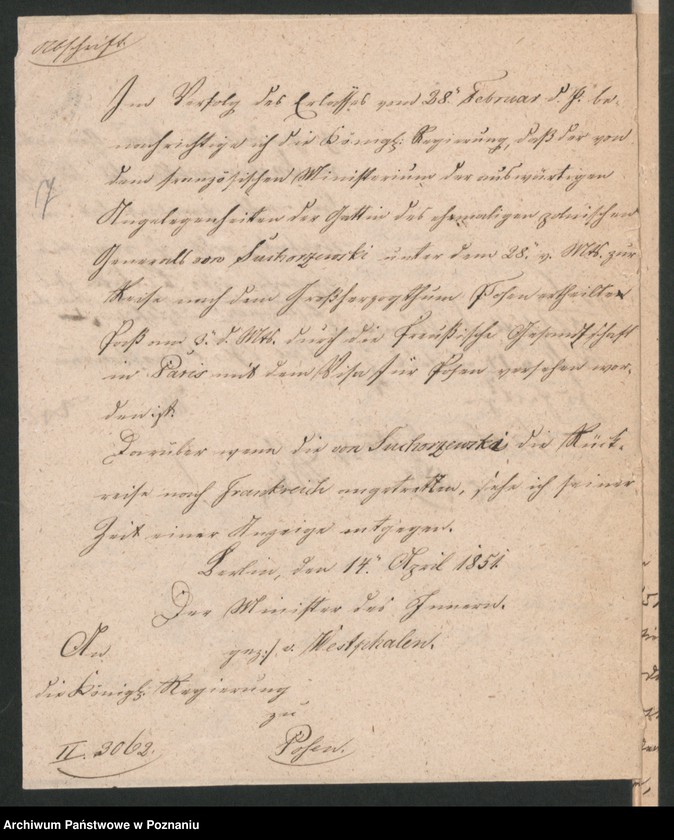 Abschrift.
Im Verfolg des Erlasses vom 28. Februar d. J. be-
nachrichtige ich die Königl: Regierung, daß der von
dem französischen Ministerium der auswärtigen
Angelegenheiten der Gattin des ehemaligen polnischen
Generals von Suchorzewski unter dem 28. v. Mts. zur
Reise nach dem Großherzogthum Posen ertheilte
Paß am 5. d. Mts. durch die Preußische Gesandtschaft
in Paris mit dem Visa für Posen versehen wor-
den ist.
Darüber wenn die von Suchorzewski die Rück-
reise nach Frankreich angetreten, sehe ich seiner
Zeit einer Anzeige entgegen.
Berlin, den 14. April 1851.
Der Minister des Innern.
gez:/ v. Westphalen.
An
die Königl: Regierung
zu
Posen.
II. 3062.
Archiwum Państwowe w Poznaniu